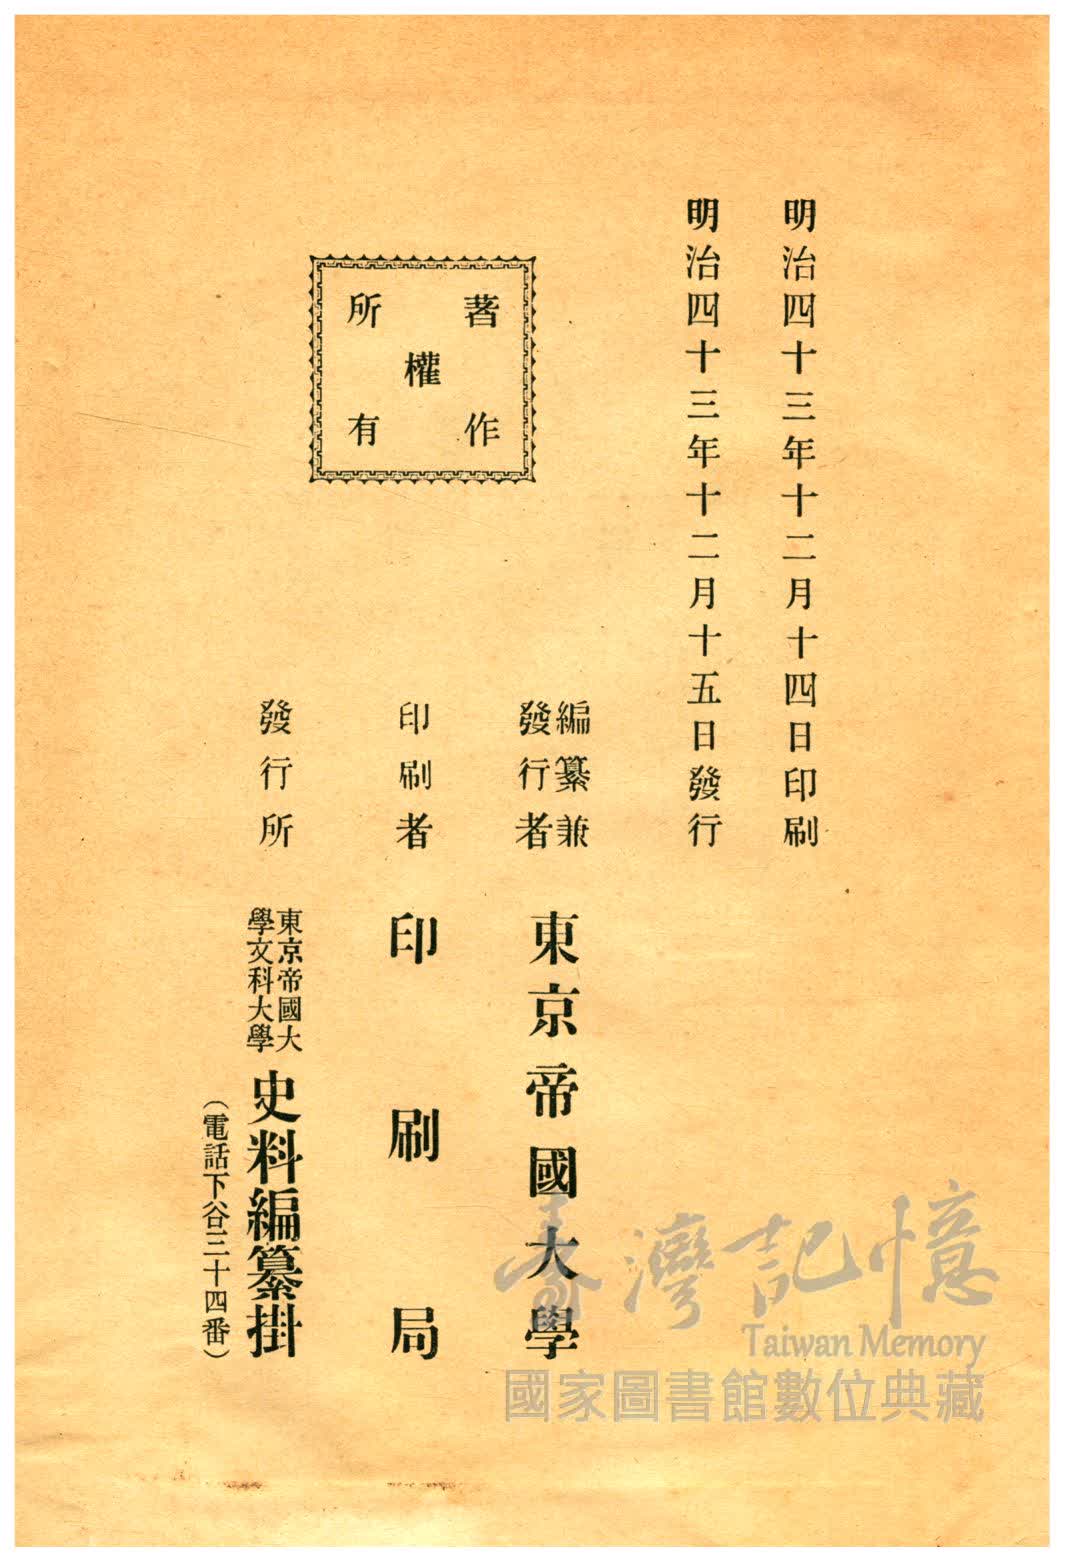 明治四十三年十二月十四日印刷
明治四十三年十二月十五日發行
著作權所有
編纂兼
發行者
東京帝國大學
印刷者
印刷局
發行所
東京帝國大
學文科大學
史料編纂掛
(電話下谷三十四番)
臺灣記憶
Taiwan Memory
國家圖書館數位典藏